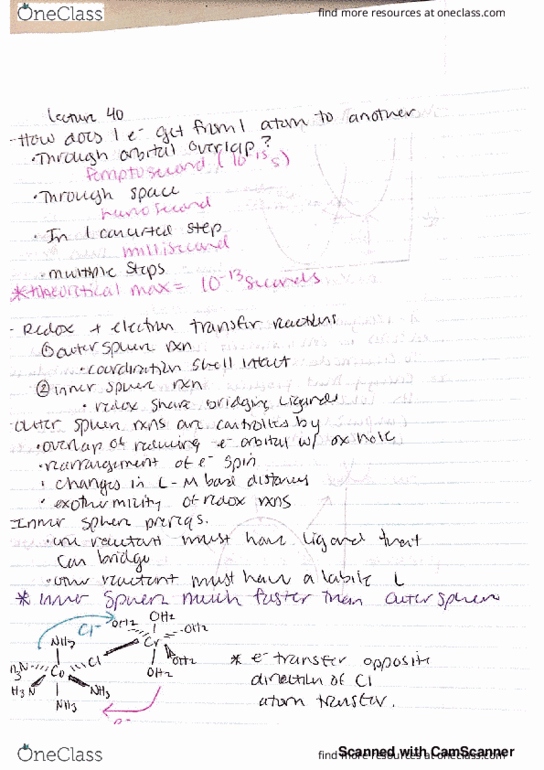 OneClass
find more resources at oneclass.com
lecture 40
-How does 1 e- get from 1 atom to another
•Through orbital overlap?
femptosecond (10-15 s)
•Through space
nanosecond
•In 1 concerted step
millisecond
•multiple steps
*theoretical max = 10-13 seconds
- Redox + electron transfer reactions
① outer sphere rxn
•coordination shell intact
② inner sphere rxn
• redox share bridging ligands
-outer sphere rxns are controlled by
•overlap of reducing e- orbital w/ ox hole
•rearrangement of e- spin
• changes in L-M base distances
• exothermicity of redox rxns
Inner sphere prereqs.
•one reactant must have ligand that
can bridge
•one reactant must have a labile L
* Inner Sphere much faster than outer sphere
Cl- OH2 OH2 OH2
NH3 Cl Cr OH2
H3N Co OH2
H3N NH3
NH3
* e- transfer opposite
direction of Cl
atom transfer.
e-
OneClass
find more resources at oneclass.com
Scanned with CamScanner